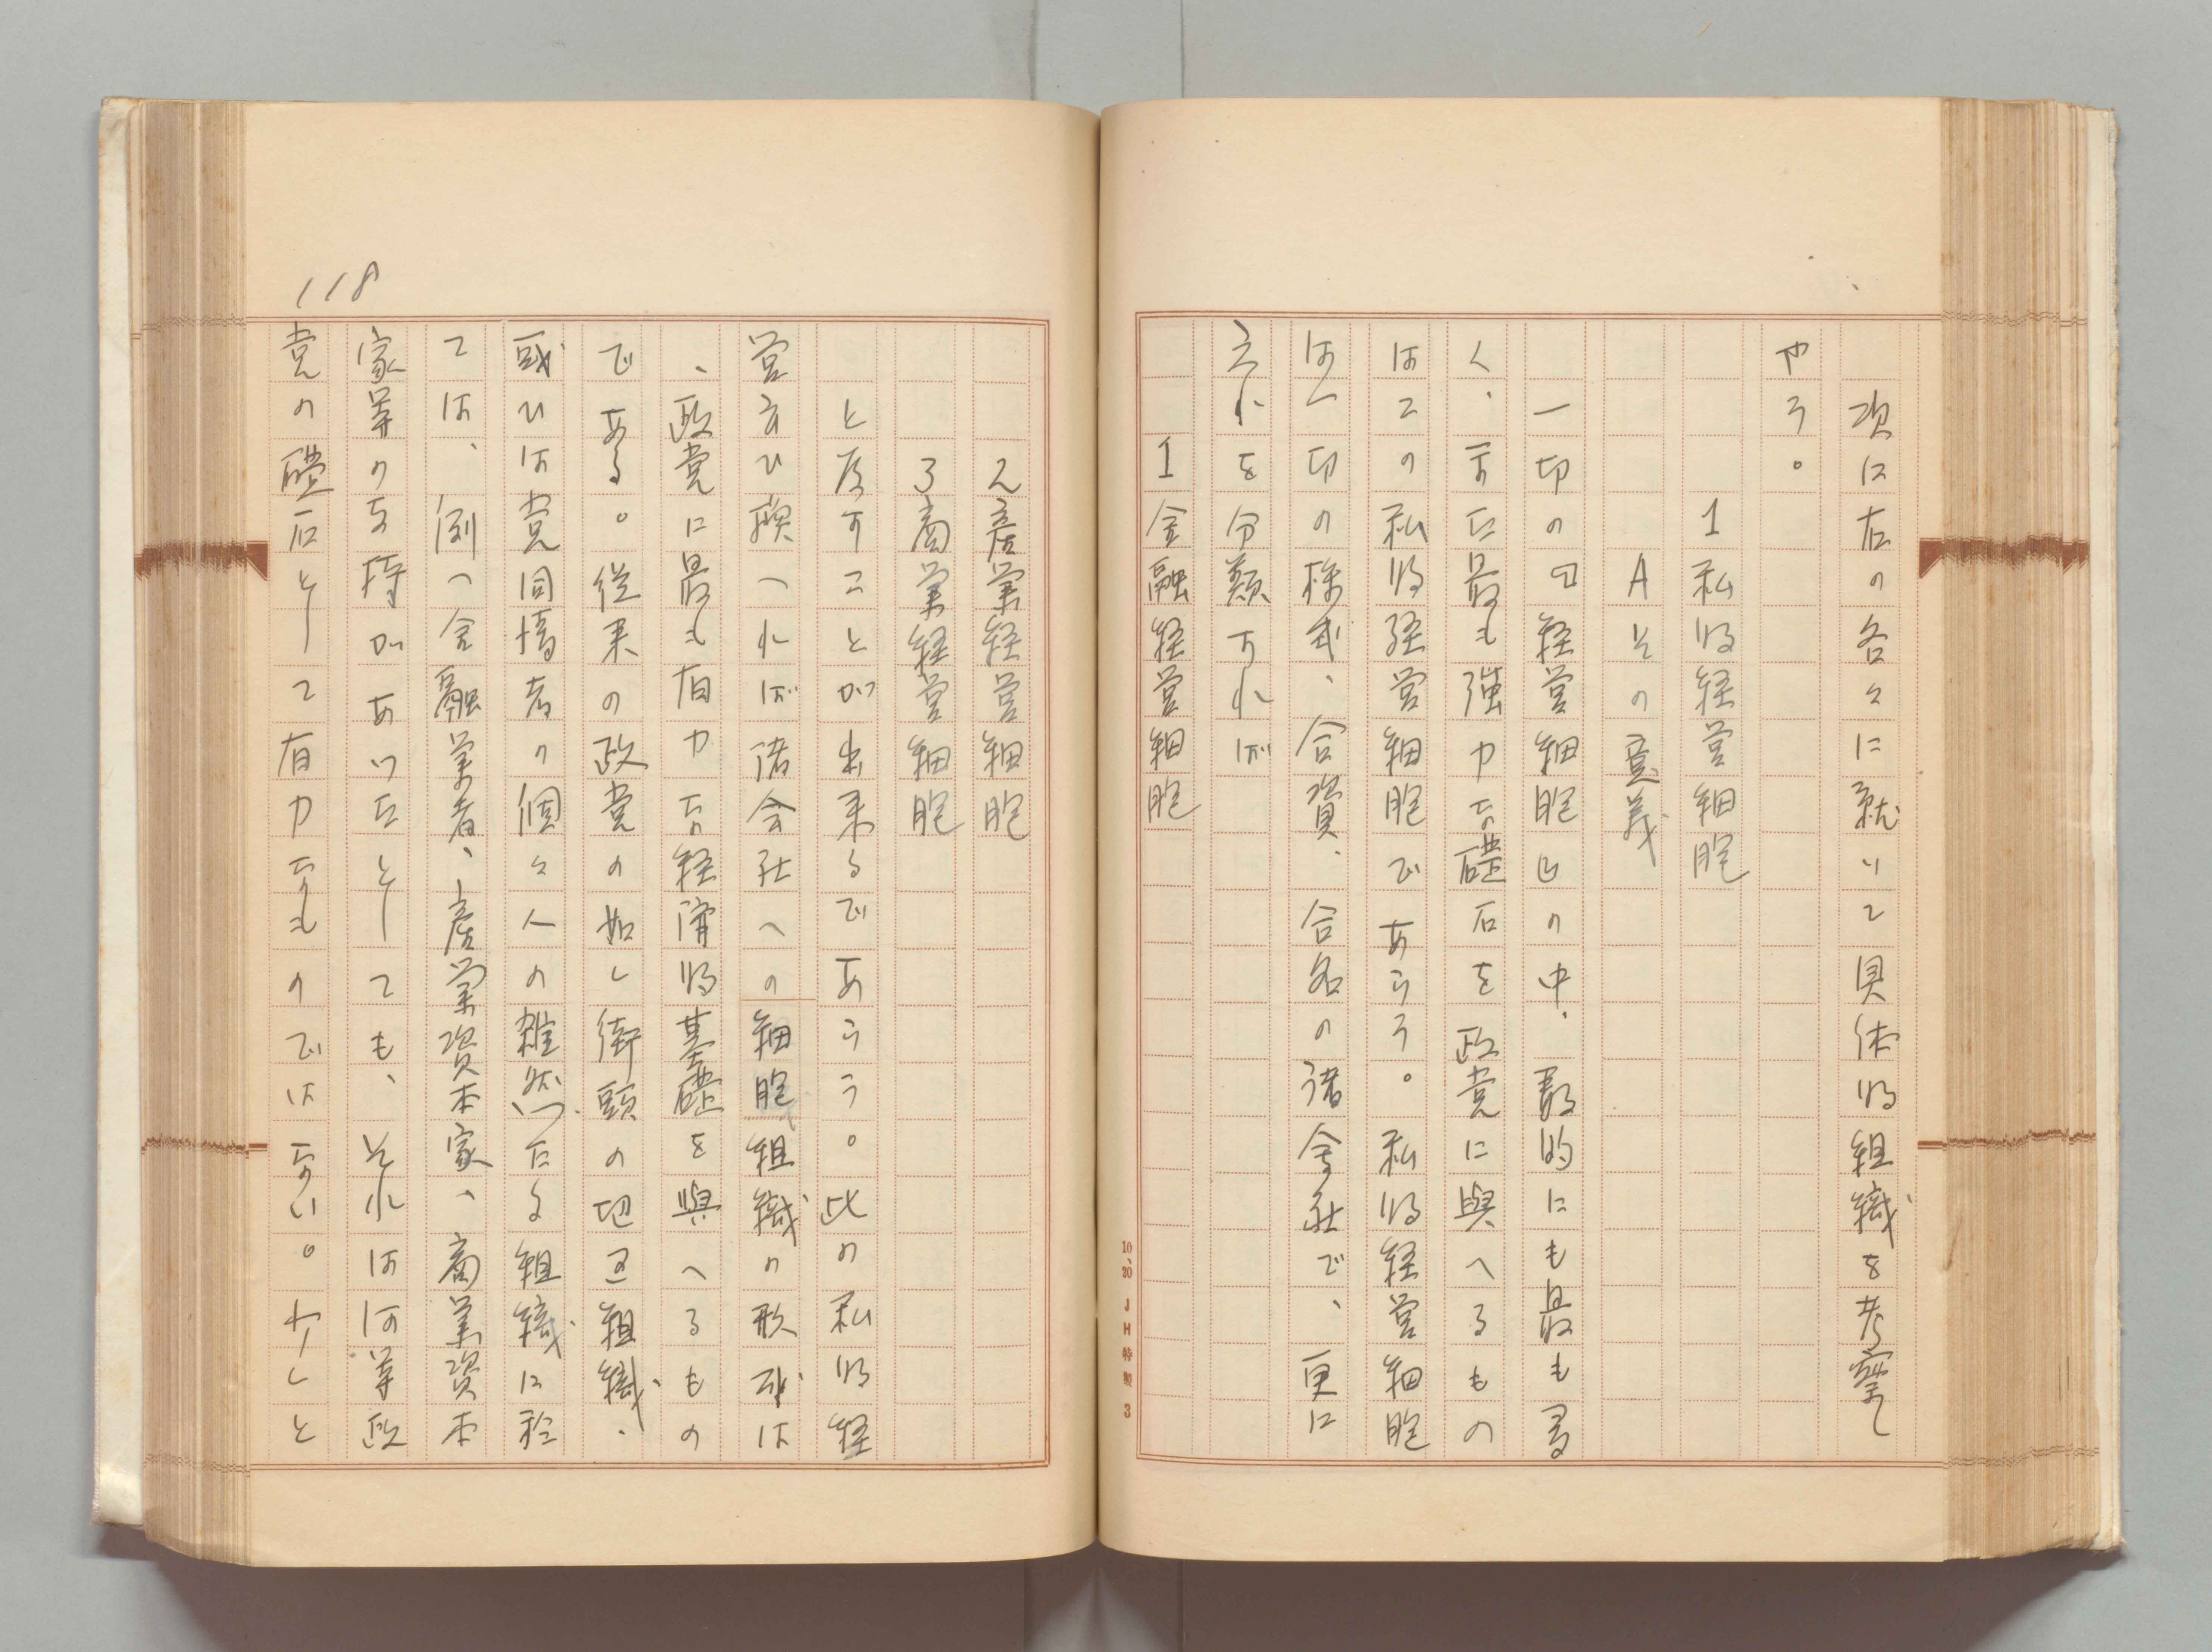 次に右の各々に就いて具体的組織を考察し
やう。
1私的経営細胞
Aその意義
一切の経営細胞の中、数的にも最も多
く、又最も強力な礎石を政党に與へるもの
はこの私的経営細胞であらう。私的経営細胞
は一切の株式、合資、合名の諸会社で、更に
之れを分類すれば
1金融経営細胞
2産業経営細胞
3商業経営細胞
と度すことが出来るであらう。此の私的経
営云ひ換へれば諸会社への細胞組織の形成は
、政党に最も有力な経済的基礎を與へるもの
である。従来の政党の如し街頭の組織、
或ひは党同情者の個々人の雑然たる組織に於
ては、例へ金融業者、産業資本家、商業資本
家等の支持があつたとしても、それは何等政
党の礎石として有力なものではない。わしと
118
10,20 JH特製 3